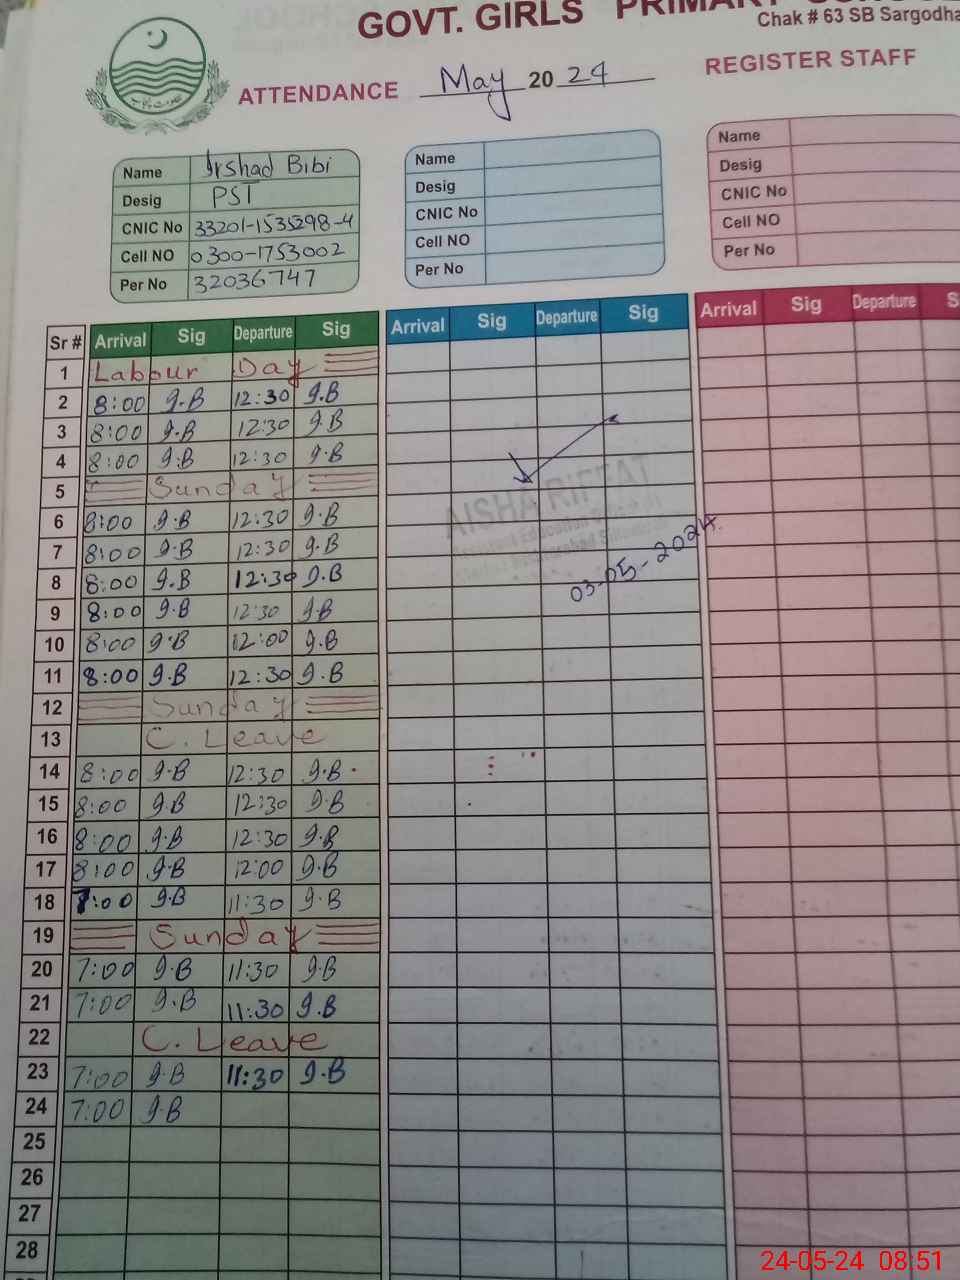 GOVT. GIRLS PRIMARY SCHOOL
Chak # 63 SB Sargodha
ATTENDANCE May 2024 REGISTER STAFF
Name Irshad Bibi
Desig PST
CNIC No 33201-1535298-4
Cell NO 0300-1753002
Per No 32036747
Name
Desig
CNIC No
Cell NO
Per No
Name
Desig
CNIC No
Cell NO
Per No
Sr # Arrival Sig Departure Sig Arrival Sig Departure Sig Arrival Sig Departure S
1 Labour Day
2 8:00 I.B 12:30 I.B
3 8:00 I.B 12:30 I.B
4 8:00 I.B 12:30 I.B
5 Sunday
6 8:00 I.B 12:30 I.B
7 8:00 I.B 12:30 I.B
8 8:00 I.B 12:30 I.B
9 8:00 I.B 12:30 I.B
10 8:00 I.B 12:00 I.B
11 8:00 I.B 12:30 I.B
12 Sunday
13 C. Leave
14 8:00 I.B 12:30 I.B
15 8:00 I.B 12:30 I.B
16 8:00 I.B 12:30 I.B
17 8:00 I.B 12:00 I.B
18 7:00 I.B 11:30 I.B
19 Sunday
20 7:00 I.B 11:30 I.B
21 7:00 I.B 11:30 I.B
22 C. Leave
23 7:00 I.B 11:30 I.B
24 7:00 I.B
25
26
27
28
AISHA RIFFAT
Assistant Education
03-05-2024
24-05-24 08:51